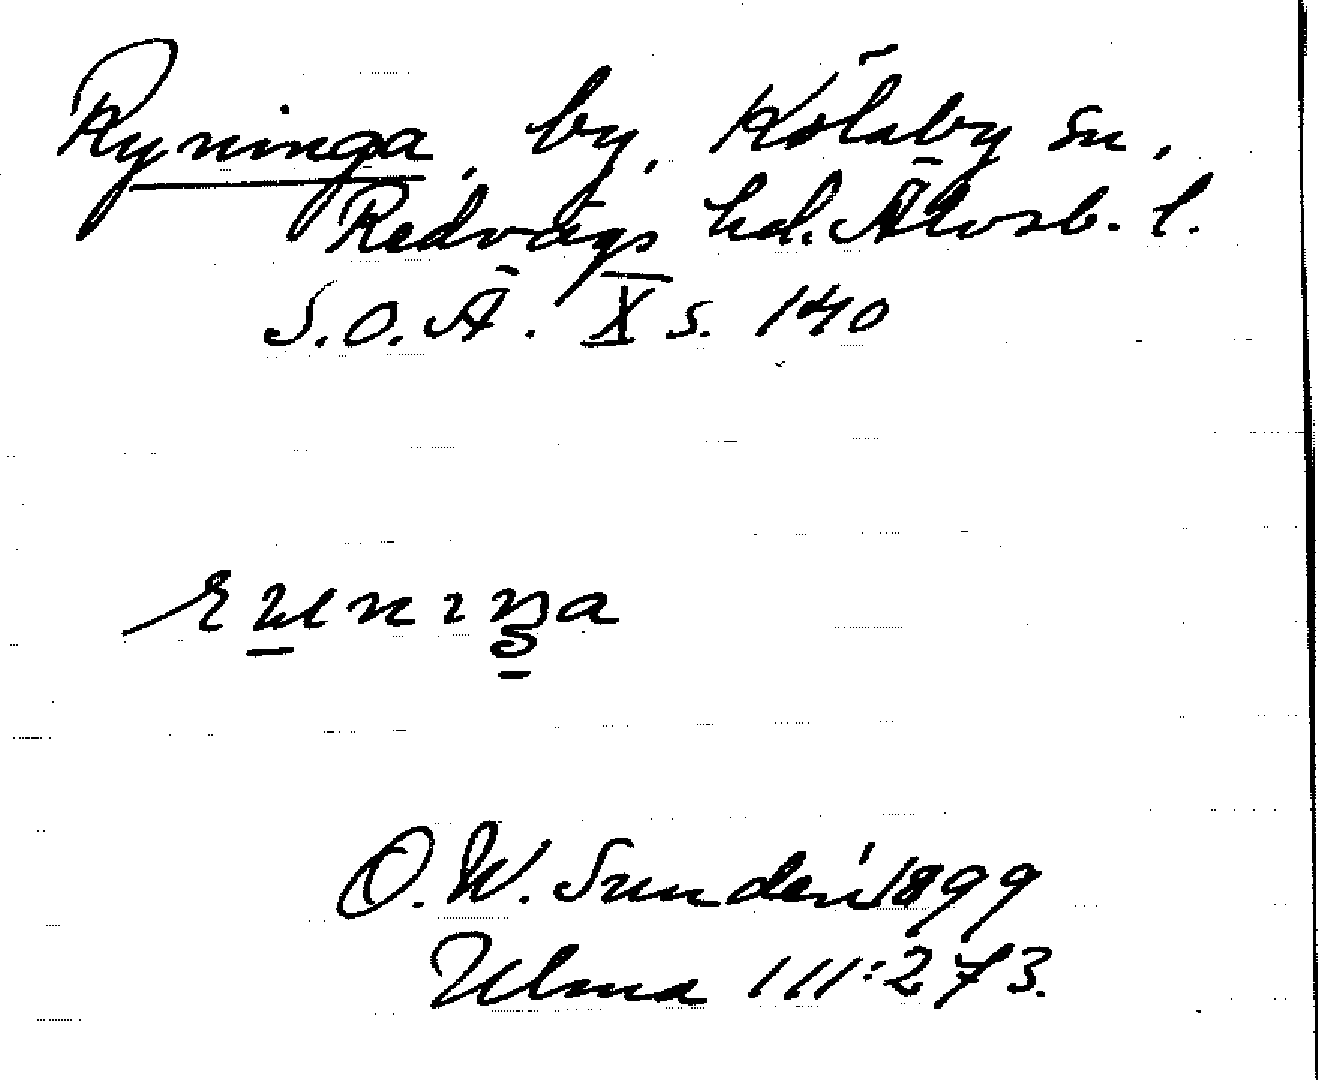 Ryninga, by, Kölaby sn,
Redvägs hd. Älvsb. l.
S.O.Ä. X s. 140
O. W. Sundén 1899
Ulma 111:273.